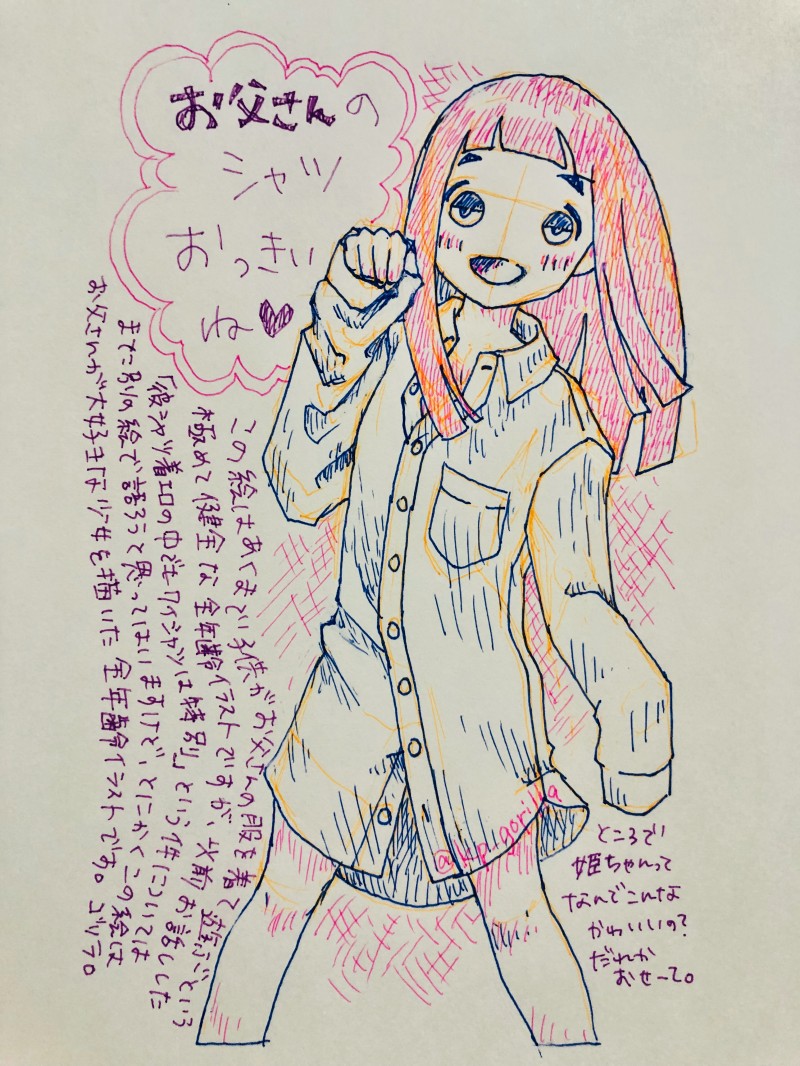 お父さんの
シャツ
おっきい
ね♥
この絵はあくまで子供がお父さんの服を着て遊ぶという
極めて健全な全年齢イラストですが、以前お話しした
「彼シャツ着エロの中でもワイシャツは特別」という件については
またこ別の絵で語ろうと思ってはいますけど、とにかくこの絵は
お父さんが大好きな少女を描いた全年齢イラストです。ゴリラ。
ところで
姫ちゃんって
なんでこんな
かわいいの?
だれか
おせーて。